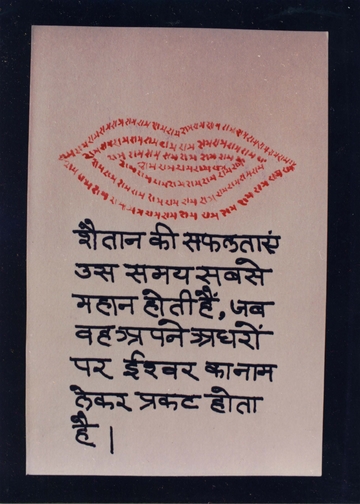 राम राम राम राम राम राम राम राम राम राम राम राम
शैतान की सफलताएं
उस समय सबसे
महान होती हैं, जब
वह अपने अधरों
पर ईश्वर का नाम
लेकर प्रकट होता
है |